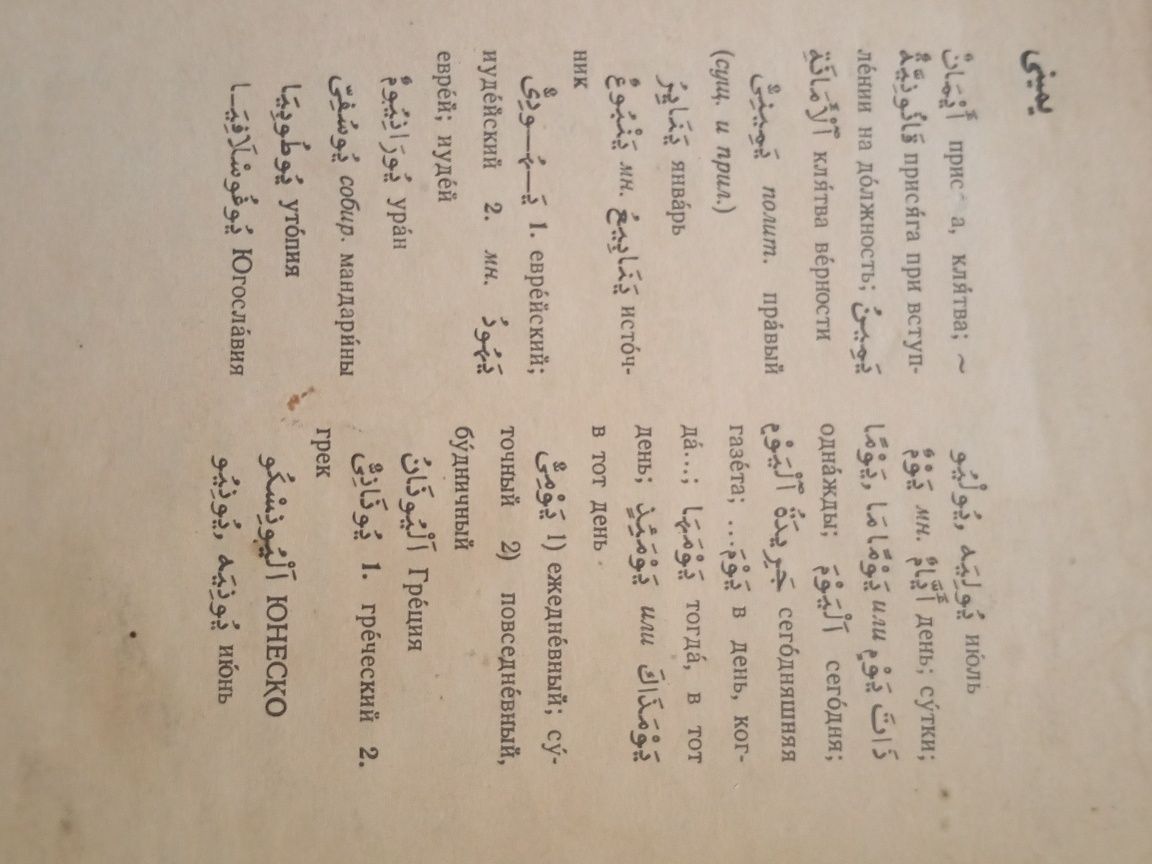 يمينى
أَيْمَانٌ прис а, кля́тва; ~
قَانُونِيَّةٌ прися́га при вступ-
ле́нии на до́лжность; يَمِينُ
ٱلْأَمَانَةِ кля́тва ве́рности
يَمِينِىٌّ полит. пра́вый
(сущ. и прил.)
يَنَايِرُ янва́рь
يَنْبُوعٌ мн. يَنَابِيعُ исто́ч-
ник
يَـهُـودِىٌّ 1. евре́йский;
иуде́йский 2. мн. يَهُودُ
евре́й; иуде́й
يُورَانِيُومٌ ура́н
يُوسُفِىّ собир. мандари́ны
يُوطُوبِيَا уто́пия
يُوغُوسْلَافِيَـا Югосла́вия
يُولِيَه ,يُولْيُو ию́ль
يَوْمٌ мн. أَيَّامٌ день; су́тки;
يَوْمًا ,يَوْمًا مَا или ذَاتَ يَوْمٍ
одна́жды; اَلْيَوْمَ сего́дня;
جَرِيدَةُ ٱلْيَوْمِ сего́дняшняя
газе́та; ...يَوْمَ в день, ког-
да́...; يَوْمَهَا тогда́, в тот
день; يَوْمَئِذٍ или يَوْمَذَاكَ
в тот день
يَوْمِىٌّ 1) ежедне́вный; су́-
точный 2) повседне́вный,
бу́дничный
اَلْيُونَانُ Гре́ция
يُونَانِىٌّ 1. гре́ческий 2.
грек
اَلْيُونِسْكُو ЮНЕСКО
يُونِيَه ,يُونِيُو ию́нь